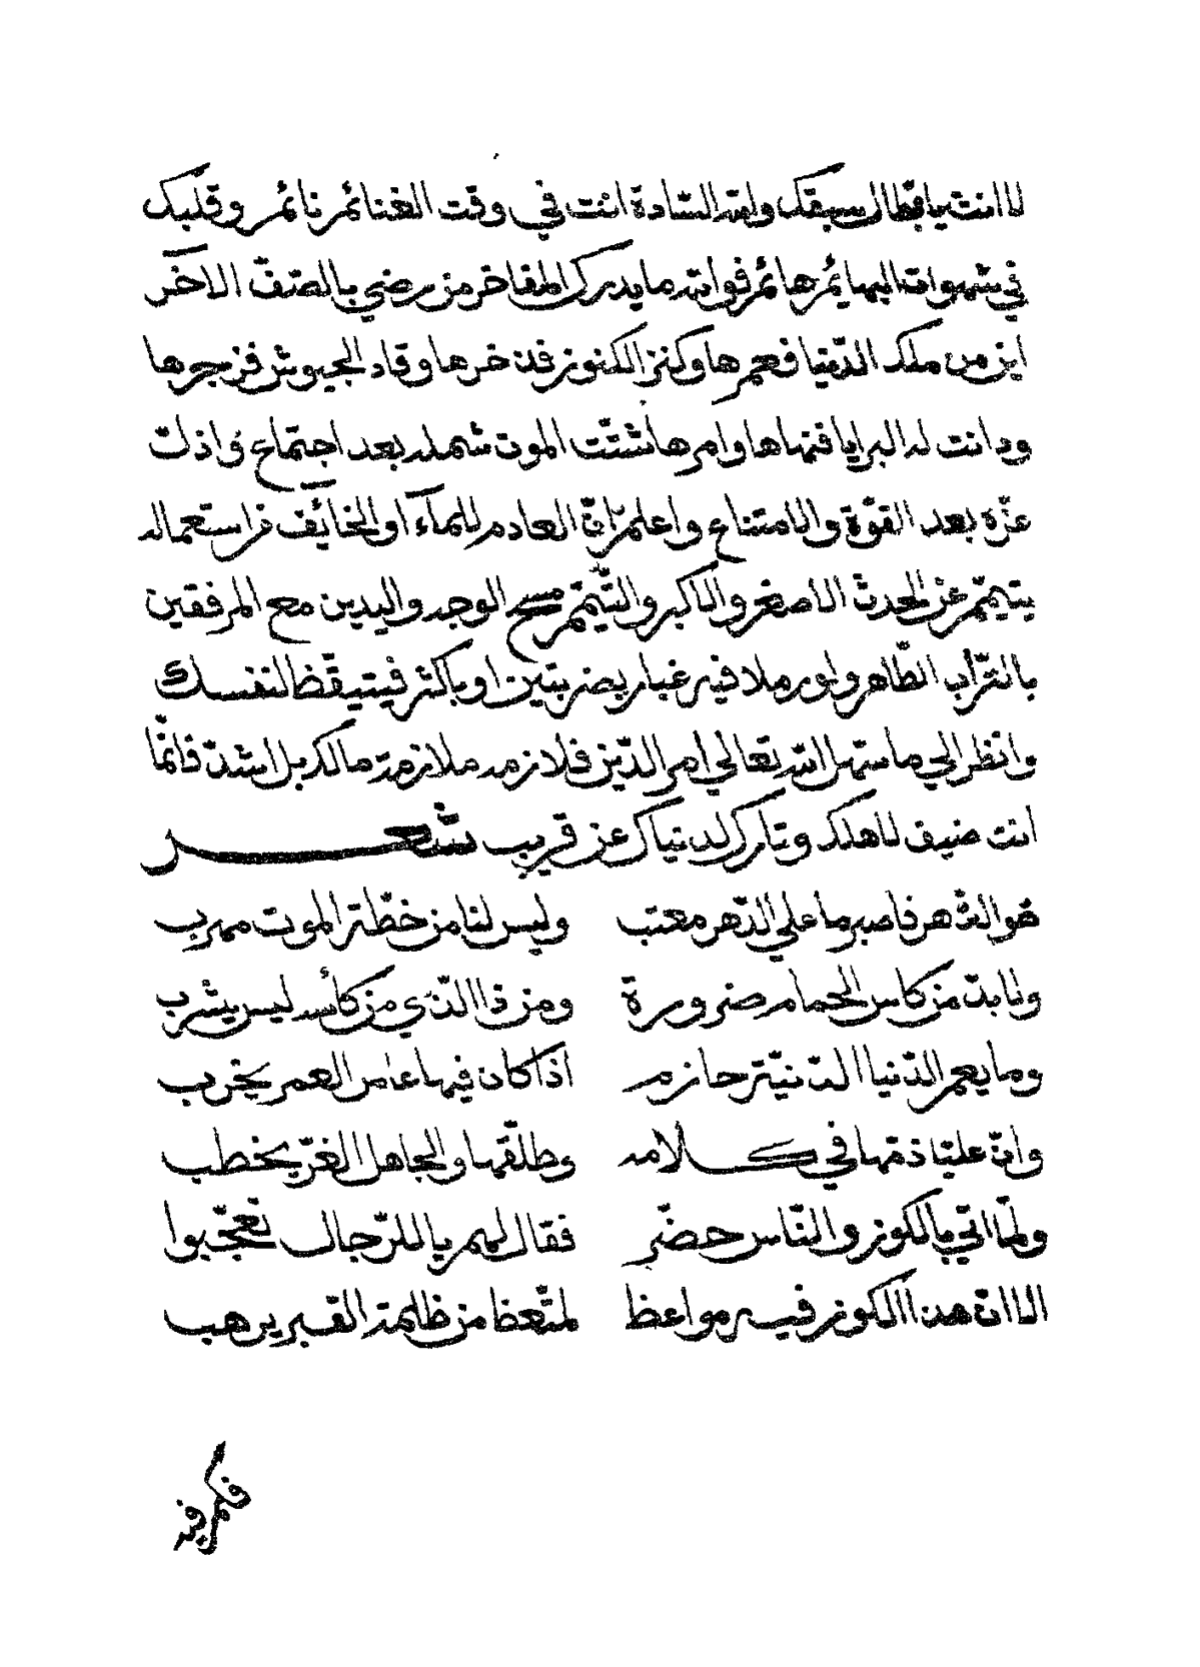 لا انت يا بطال سبقك والله السادة انت في وقت الغنائم نائم وقلبك
في شهوات البهائم هائم فوالله ما يدرك المفاخر من رضي بالصف الاخر
اين من ملك الدنيا فعمرها وكنز الكنوز فدخرها وقاد الجيوش فزجرها
ودانت له البرايا فنهاها وامرها شتت الموت شمله بعد اجتماع واذل
عزه بعد القوة والامتناع واعلم ان العادم للماء او الخائف من استعماله
يتيمم عن الحدث الاصغر والاكبر والتيمم مسح الوجه واليدين مع المرفقين
بالتراب الطاهر ولو رملا فيه غبار بضربتين او باكثر فتيقظ لنفسك
وانظر الي ما سهل الله تعالي امر الدين فلازمه ملازمة مالك بل اشد فانما
انت ضيف لاهلك وتارك لدنياك عن قريب شعر
هو الدهر فاصبر ما علي الدهر معتب وليس لنا من خطة الموت مهرب
ولا بد من كاس الحمام ضرورة ومن ذا الذي من كأسه ليس يشرب
وما يعمر الدنيا الدنية حازم اذا كان فيها عامر العمر يخرب
وان عليا ذمها في كلامه وطلقها والجاهل الغر يخطب
ولما اتي بالكوز والناس حضر فقال لهم يا للرجال تعجبوا
الا ان هذا الكوز فيه مواعظ لمتعظ من ظلمة القبر يرهب
فكم فيه